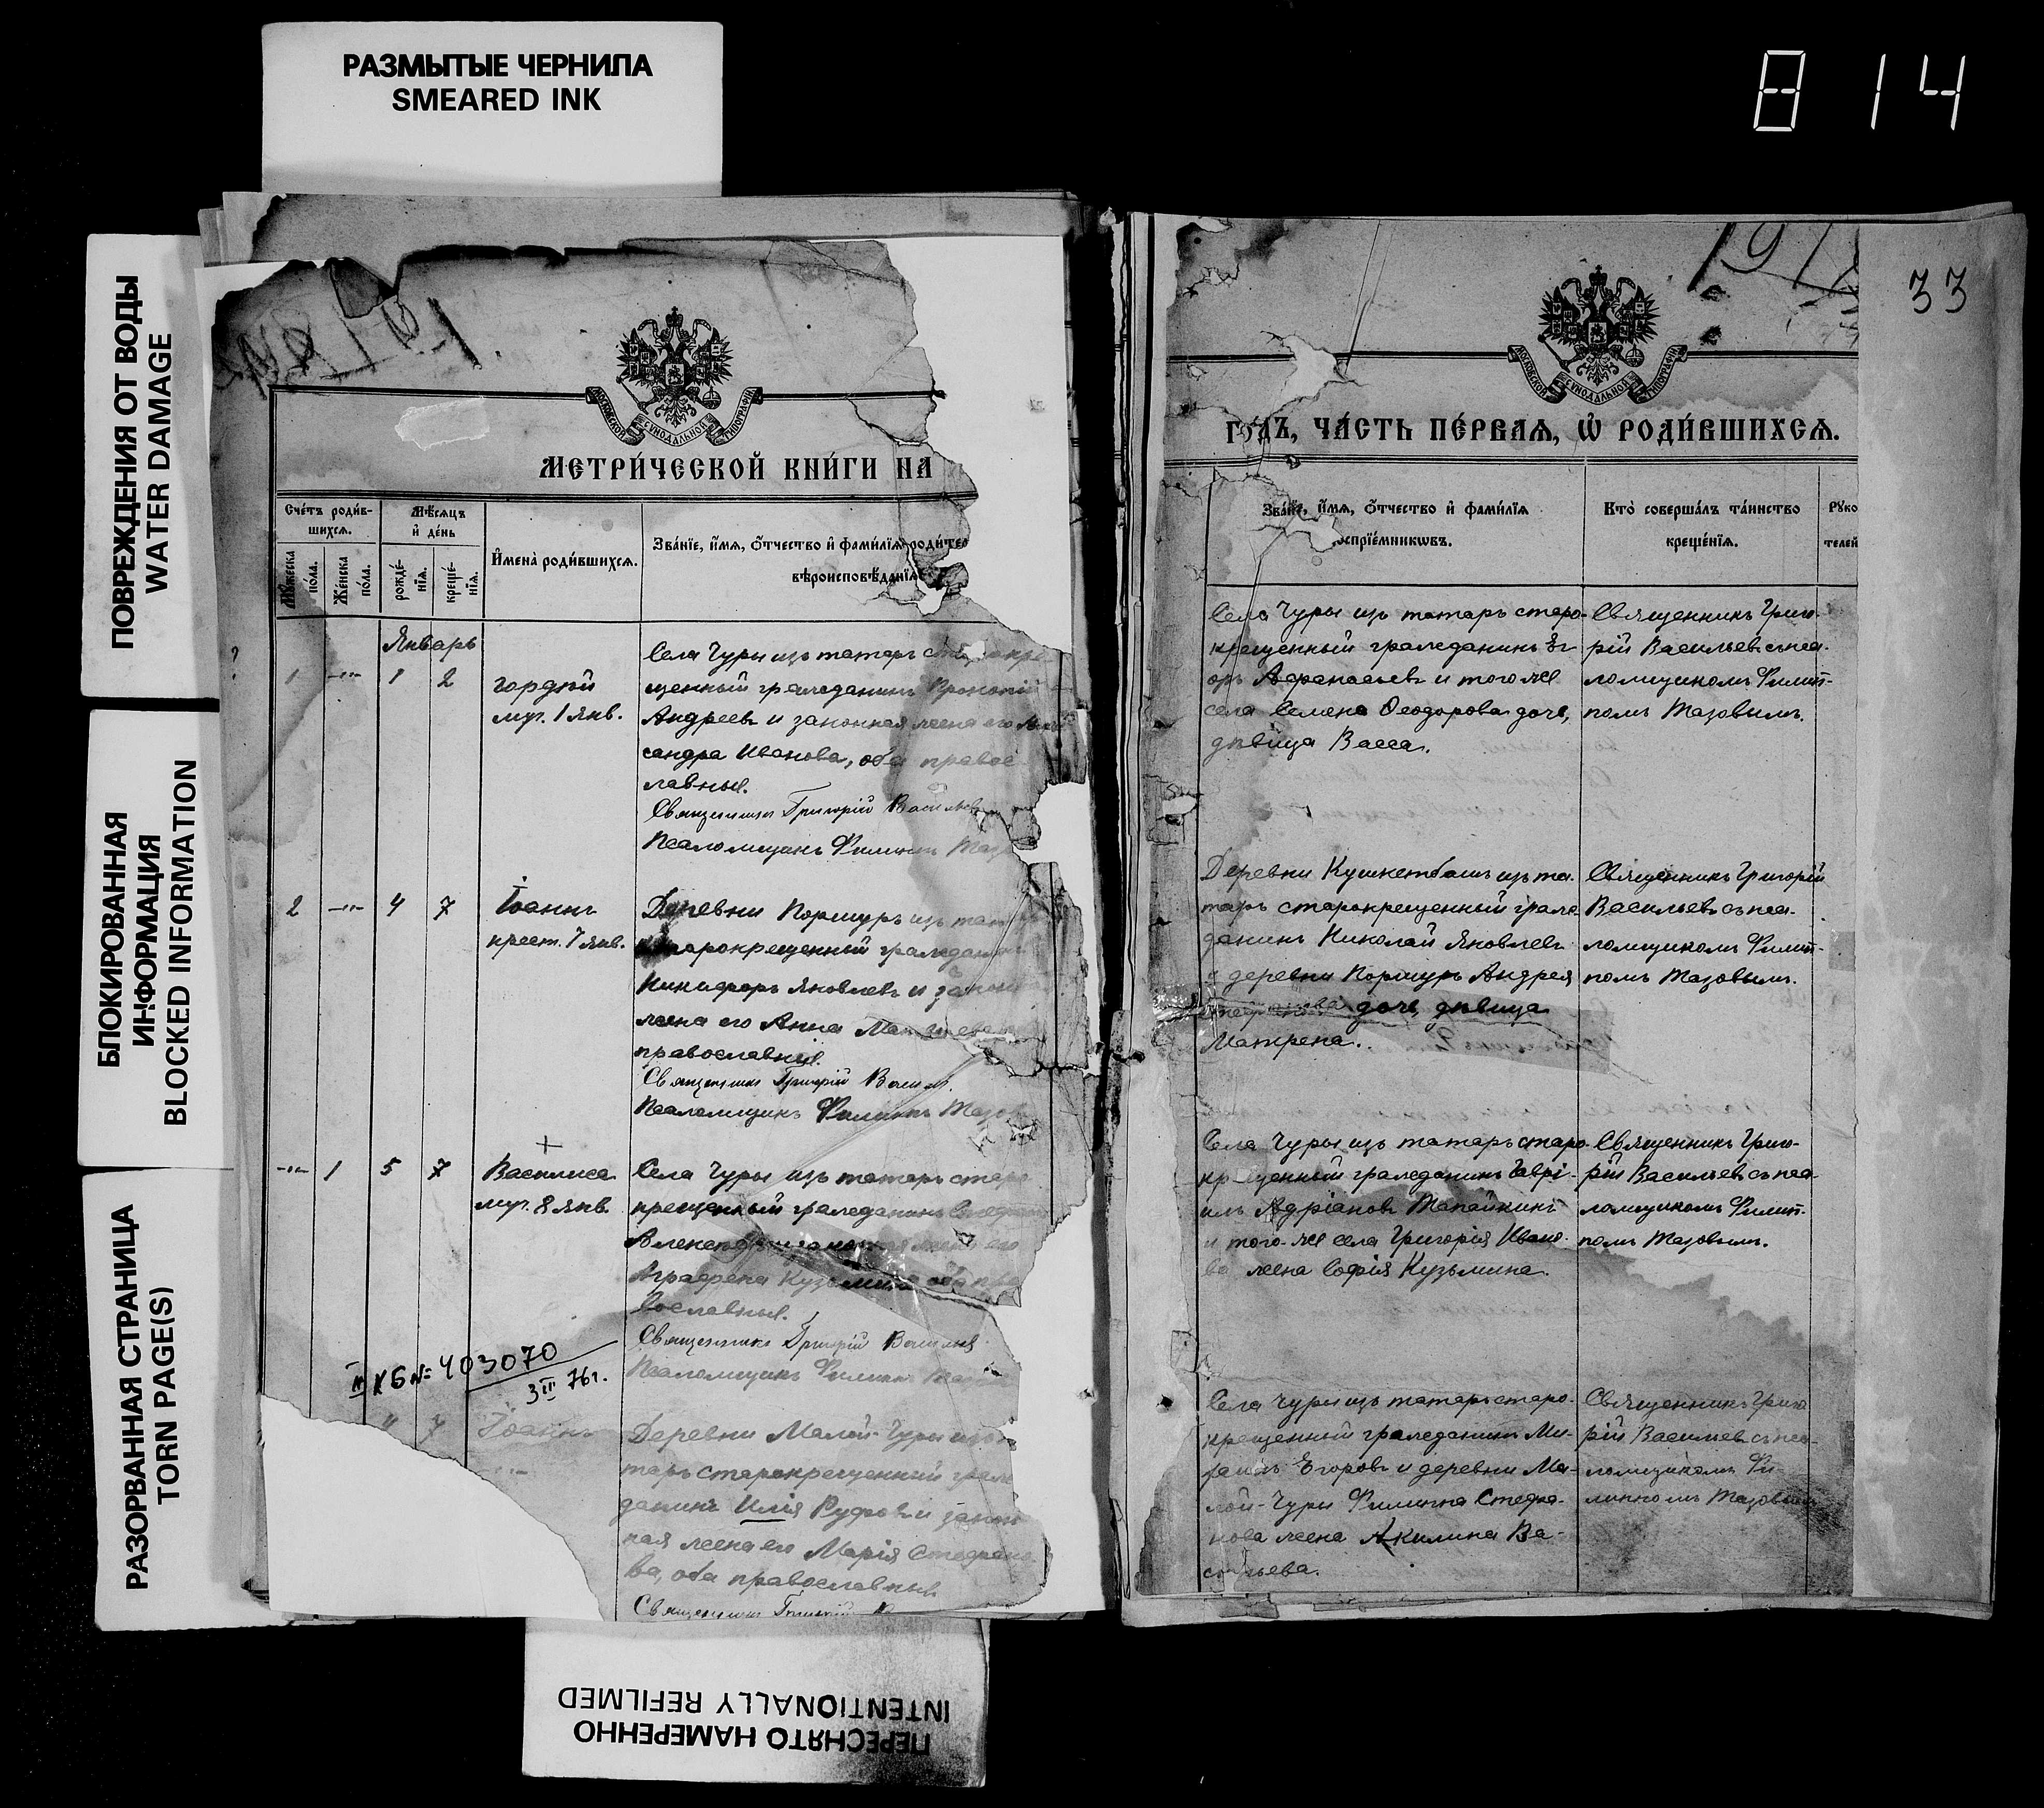 РАЗМЫТЫЕ ЧЕРНИЛА
SMEARED INK
814
ПОВРЕЖДЕНИЯ ОТ ВОДЫ
WATER DAMAGE
БЛОКИРОВАННАЯ
ИНФОРМАЦИЯ
BLOCKED INFORMATION
РАЗОРВАННАЯ СТРАНИЦА
TORN PAGE(S)
МОСКОВСКОЙ СѴНОДАЛЬНОЙ ТИПОГРАФІИ
МЕТРИ́ЧЕСКОЙ КНИ́ГИ НА
Сче́тъ роди́в-
шихся.
Мѣ́сяцъ
и҆ де́нь
Мꙋ́жеска
по́ла.
Же́нска
по́ла.
рожде́-
нїѧ.
креще́-
нїѧ.
И҆мена̀ роди́вшихсѧ.
Зва́нїе, и҆́мѧ, ѻ҆́тчество и҆ фами́лїѧ роди́те
вѣроисповѣ́данїѧ
Январь
1 -"- 1 2
Гордій
муч. 1 янв.
Села Чуры изъ татаръ
щенный гражданинъ Прокопій
Андреевъ и законная жена его
сандра Иванова, оба правос
лавные.
Священникъ Григорій Васильев
Псаломщикъ Филиппъ
2 -"- 4 7
Іоаннъ
крест. 7 янв.
Деревни Поршуръ изъ
старокрещенный гражданинъ
Никифоръ Яковлевъ и закон
жена его Анна
православныя.
Священникъ Григорій
Псаломщикъ Филиппъ Тазов
-"- 1 5 7
Василиса
муч. 8 янв.
Села Чуры изъ татаръ старо
крещенный гражданинъ
Аграфена Кузьмина оба пра
вославные.
Священникъ Григорій Васильев
Псаломщикъ Филиппъ
КБ №= 403070
3 III 76г.
4 7
Іоаннъ
Деревни Малой-Чуры изъ
таръ старокрещенный граж
данинъ Илія Руфовъ и закон
ная жена его Марія Стефано
ва, оба православные
Священникъ Григорій
191
33
МОСКОВСКОЙ СѴНОДАЛЬНОЙ ТИПОГРАФІИ
ГО́ДЪ, ЧА́СТЬ ПЕ́РВАѦ, Ѡ҆ РОДИ́ВШИХСѦ.
Зва́нїе, и҆́мѧ, ѻ҆́тчество и҆ фами́лїѧ
оспрїе́мникѡвъ.
Кто̀ соверша́лъ та́инство
креще́нїѧ.
Рꙋко
телей
Села Чуры изъ татаръ старо-
крещенный гражданинъ Ег
оръ Афанасьевъ и того же
села Семена Ѳеодорова дочь,
дѣвица Васса.
Священникъ Григо-
рій Васильевъ съ пса-
ломщикомъ Филип-
помъ Тазовымъ.
Деревни Кушкетбашъ изъ та-
таръ старокрещенный граж-
данинъ Николай Яковлевъ
и деревни Поршуръ Андрея
Стефанова дочь, дѣвица
Матрена.
Священникъ Григорій
Васильевъ съ пса-
ломщикомъ Филип-
помъ Тазовымъ.
Села Чуры изъ татаръ старо-
крещенный гражданинъ Гаврі-
илъ Адріановъ Тапайкинъ
и того-же села Григорія Ивано-
ва жена Софія Кузьмина.
Священникъ Григо-
рій Васильевъ съ пса-
ломщикомъ Филип-
помъ Тазовымъ.
Села Чуры изъ татаръ старо-
крещенный гражданинъ Ми-
хаилъ Егоровъ и деревни Ма-
лой-Чуры Филиппа Стефа-
нова жена Акилина Ва-
сильева.
Священникъ Григо
рій Васильевъ съ пса-
ломщикомъ Фи-
липпомъ Тазовым
ПЕРЕСНЯТО НАМЕРЕННО
INTENTIONALLY REFILMED